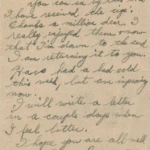 You can see by this that
I have received the cigs.
Thanks a million dear. I
really enjoyed them & now
that I'm down to the end
I am returning it to you.
Have had a bad cold
this week, but am improving
now.
I will write a letter
in a couple days when
I feel better.
I hope you are all well